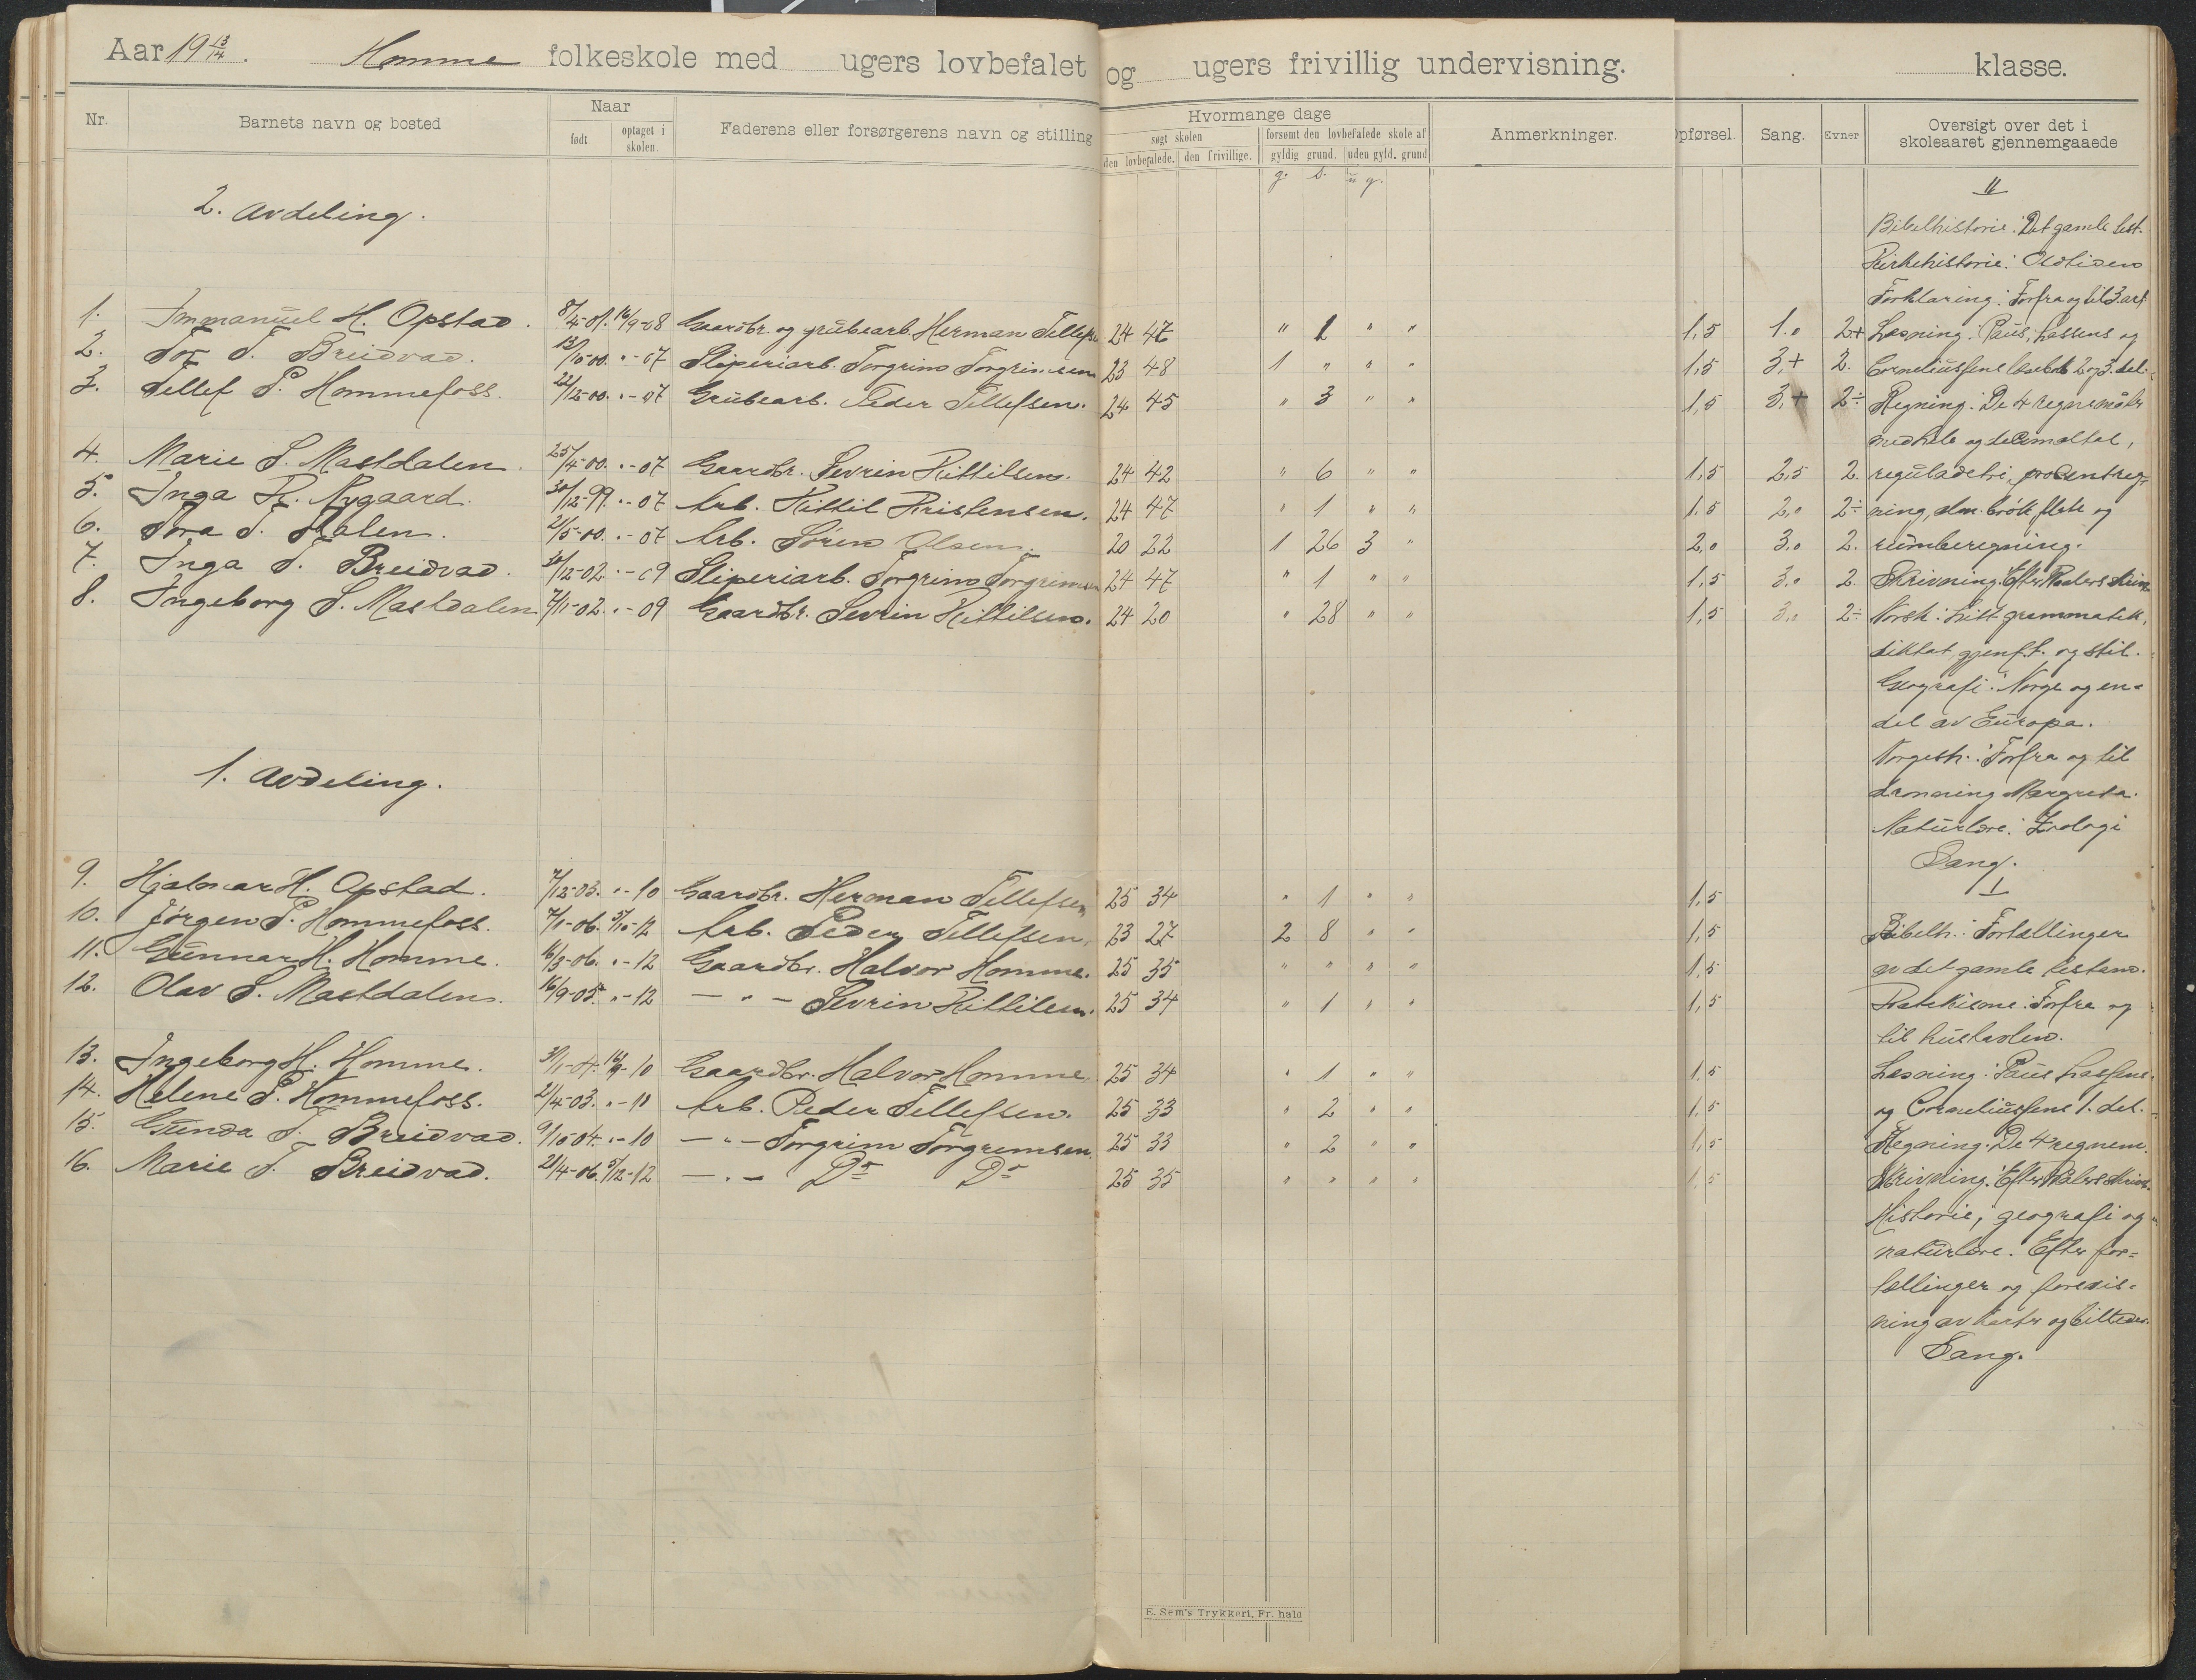 Aar 19 13/14. Homme folkeskole med ugers lovbefalet og ugers frivillig undervisning. klasse.
Nr. Barnets navn og bosted Naar født optaget i skolen. Faderens eller forsørgerens navn og stilling Hvormange dage søgt skolen den lovbefalede. den frivillige. forsømt den lovbefalede skole af gyldig grund. uden gyld. grund Anmerkninger. Opførsel. Sang. Evner Oversigt over det i skoleaaret gjennemgaaede
g. s. u g.
2. Avdeling.
1. Immanuel H. Opstad. 8/4-01. 16/9-08 Gaardbr. og grubearb. Herman Tellefsen 24 47 " 1 " " 1,5 1.0 2+
2. Tor T. Breidvad. 13/10-00. "-07 Sliperiarb. Torgrim Torgrimsen 23 48 1 " " " 1,5 3,+ 2.
3. Tellef P. Hommefoss. 22/12-00. "-07 Grubearb. Peder Tellefsen. 24 45 " 3 " " 1,5 3,+ 2÷
4. Marie S. Mastdalen. 25/4-00. "-07 Gaardbr. Sevrin Kittilsen. 24 42 " 6 " " 1,5 2,5 2.
5. Inga K. Nygaard. 30/12-99. "-07 Arb. Kittil Kristensen. 24 47 " 1 " " 1,5 2,0 2÷
6. Tora S. Dalen. 2/5-00. "-07 Arb. Søren Olsen. 20 22 1 26 3 " 2,0 3.0 2.
7. Inga T. Breidvad. /12-02. "-09 Sliperiarb. Torgrim Torgrimsen 24 47 " 1 " " 1,5 3.0 2
8. Ingeborg S. Mastdalen 7/11-02. "-09 Gaardbr. Sevrin Kittilsen. 24 20 " 28 " " 1,5 3.0 2÷
1. Avdeling.
9. Hjalmar H. Opstad. 7/12-03. "-10 Gaardbr. Herman Tellefsen 25 34 " 1 " " 1,5
10. Jørgen P. Hommefoss. 7/1-06. 5/10-12 Arb. Peder Tellefsen, 23 27 2 8 " " 1,5
11. Gunnar H. Homme. 16/3-06. "-12 Gaardbr. Halvor Homme. 25 35 " " " " 1,5
12. Olav S. Mastdalen. 16/9-05. "-12 — " — Sevrin Kittilsen. 25 34 " 1 " " 1,5
13. Ingeborg H. Homme. 31/1-04. 16/9-10 Gaardbr. Halvor Homme 25 34 " 1 " " 1,5
14. Helene P. Hommefoss. 21/4-03. "-10 Arb. Peder Tellefsen. 25 33 " 2 " " 1,5
15. Gunda T. Breidvad. 9/10-04. "-10 — " — Torgrim Torgrimsen. 25 33 " 2 " " 1,5
16. Marie T. Breidvad. 21/4-06. 5/12-12 — " — Do Do 25 35 " " " " 1,5
II
Bibelhistorie: Det gamle test.
Kirkehistorie: Oldtiden
Forklaring: Forfra og til 3. art
Læsning: Paus, Lassens og
Corneliussens læsebok 2 og 3. del.
Regning: De 4 regnemåter
med hele og decimaltal,
reguladetri, procentreg-
ning, alm. brøk flate og
rumberegning.
Skrivning: Efter Waalers skriv.
Norsk: Litt grammatik,
diktat, gjenft. og stil.
Geografi: Norge og en-
del av Europa.
Norgesh.: Forfra og til
dronning Margreta.
Naturlære: Zoologi
Sang.
I
Bibelh.: Fortællinger
av det gamle testam.
Katekisme: Forfra og
til hustavlen.
Læsning: Paus Lassens
og Corneliussens 1. del.
Regning: De 4 regnem.
Skrivning: Efter Walers skriv.
Historie, geografi og
naturlære: Efter for-
tællinger og forevis-
ning av karter og billeder.
Sang.
E. Sem's Trykkeri, Fr. hald